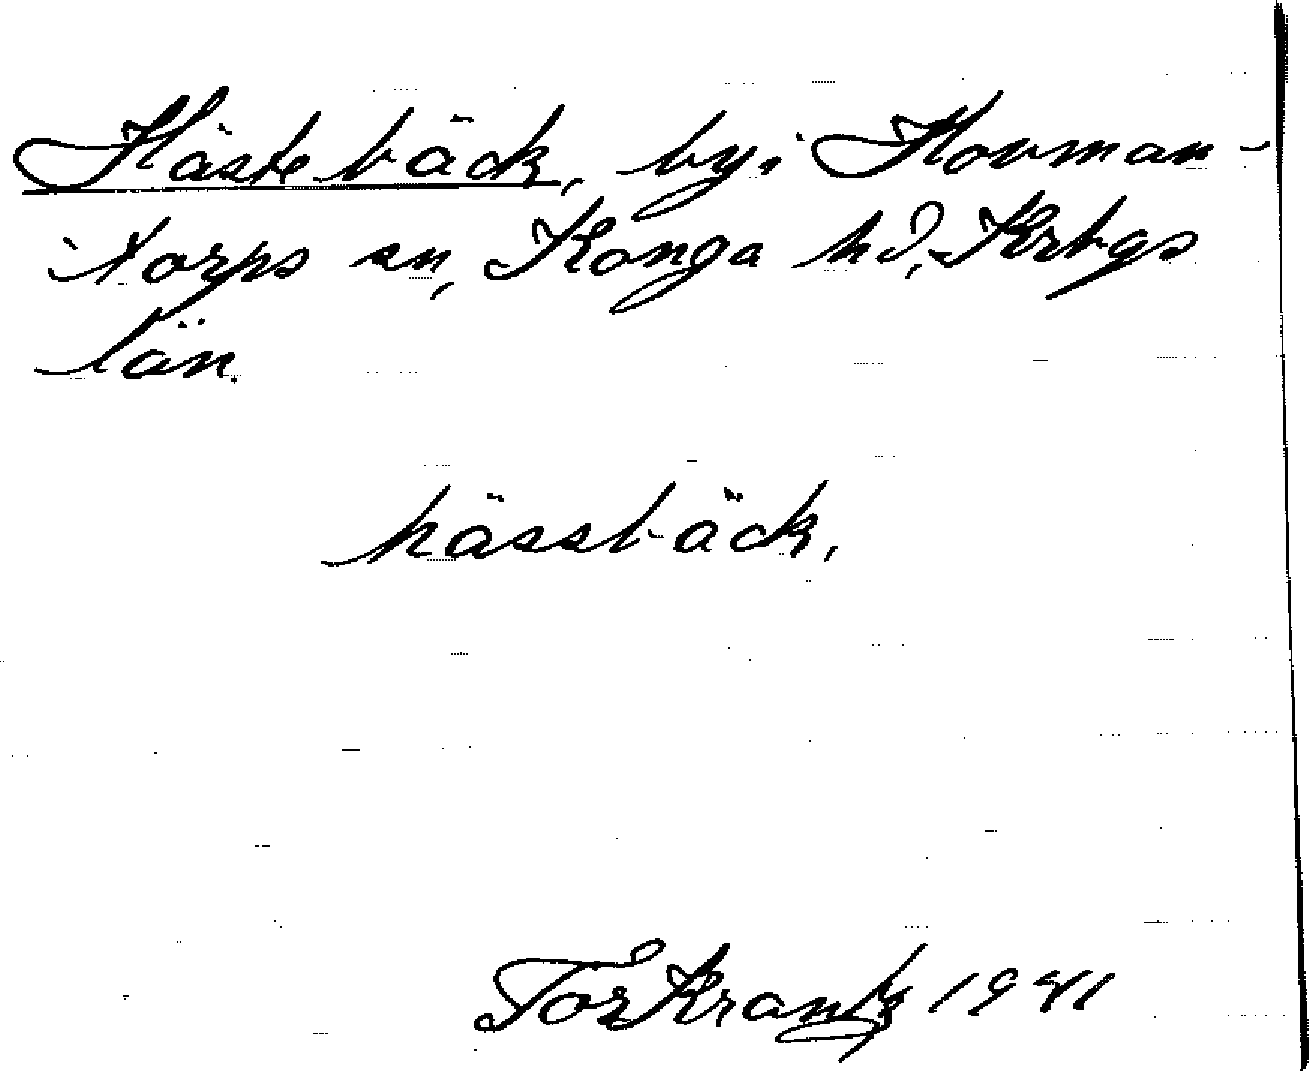 Hästebäck, by i Hovman-
torps sn, Konga hd, Krbgs
län.
hässbäck,
Tor Krantz 1941